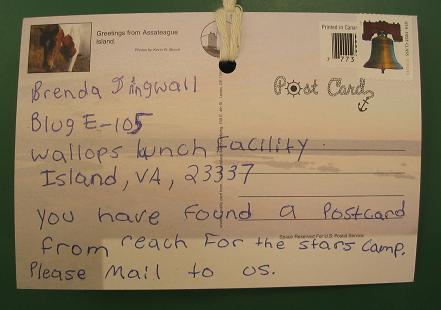 Greetings from Assateague
Island.
Printed in Canada
7 773
Post Card
Brenda Dingwall
Blug E-105
Wallops lunch Facility.
Island, VA, 23337
You have found a postcard
from reach for the stars camp.
Space Reserved For U.S. Postal Service
Please Mail to us.